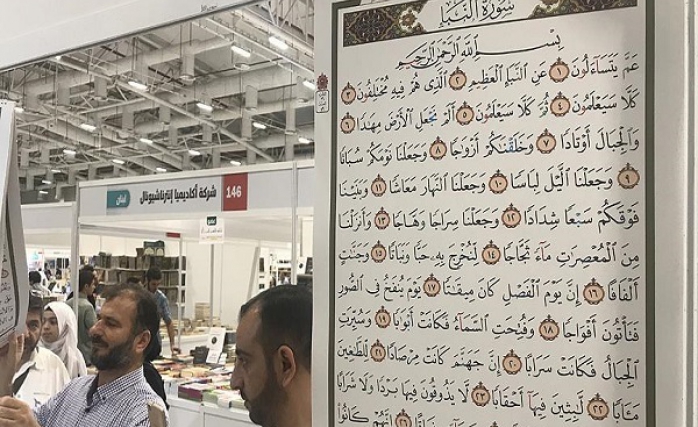 سُورَةُ النَّبَإِ
بِسْمِ اللَّهِ الرَّحْمَٰنِ الرَّحِيمِ
عَمَّ يَتَسَآءَلُونَ ١ عَنِ النَّبَإِ الْعَظِيمِ ٢ الَّذِى هُمْ فِيهِ مُخْتَلِفُونَ ٣
كَلَّا سَيَعْلَمُونَ ٤ ثُمَّ كَلَّا سَيَعْلَمُونَ ٥ أَلَمْ نَجْعَلِ الْأَرْضَ مِهَٰدًا ٦
وَالْجِبَالَ أَوْتَادًا ٧ وَخَلَقْنَٰكُمْ أَزْوَٰجًا ٨ وَجَعَلْنَا نَوْمَكُمْ سُبَاتًا
٩ وَجَعَلْنَا الَّيْلَ لِبَاسًا ١٠ وَجَعَلْنَا النَّهَارَ مَعَاشًا ١١ وَبَنَيْنَا
فَوْقَكُمْ سَبْعًا شِدَادًا ١٢ وَجَعَلْنَا سِرَاجًا وَهَّاجًا ١٣ وَأَنزَلْنَا
مِنَ الْمُعْصِرَٰتِ مَآءً ثَجَّاجًا ١٤ لِّنُخْرِجَ بِهِ حَبًّا وَنَبَاتًا ١٥ وَجَنَّٰتٍ
أَلْفَافًا ١٦ إِنَّ يَوْمَ الْفَصْلِ كَانَ مِيقَٰتًا ١٧ يَوْمَ يُنفَخُ فِى الصُّورِ
فَتَأْتُونَ أَفْوَاجًا ١٨ وَفُتِحَتِ السَّمَآءُ فَكَانَتْ أَبْوَٰبًا ١٩ وَسُيِّرَتِ
الْجِبَالُ فَكَانَتْ سَرَابًا ٢٠ إِنَّ جَهَنَّمَ كَانَتْ مِرْصَادًا ٢١ لِّلطَّٰغِينَ
مَـَٔابًا ٢٢ لَّٰبِثِينَ فِيهَآ أَحْقَابًا ٢٣ لَّا يَذُوقُونَ فِيهَا بَرْدًا وَلَا شَرَابًا
إِنَّهُمْ كَانُوا
146 شركة أكاديميا إنترناشيونال لبنان